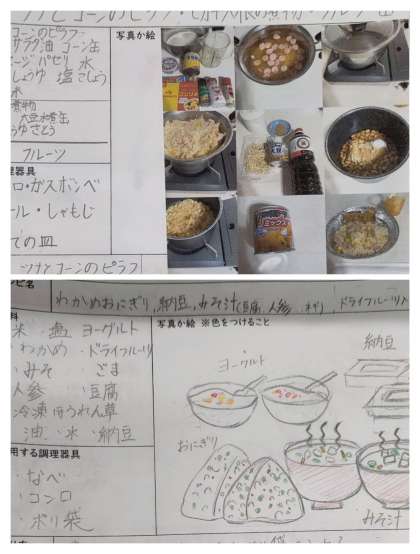 ツナとコーンのピラフ・
コーンのピラフ
サラダ油 コーン缶
ージ パセリ 水
しょうゆ 塩こしょう
米
煮物
大豆水煮缶
うゆ さとう
フルーツ
写真か絵
理器具
ロ・ガスボンベ
ール・しゃもじ
ての皿
ツナとコーンのピラフ
ミックス
シピ名
わかめおにぎり, 納豆, みそ汁(豆腐 人参 ネギ), ドライフルーツ入
料
米 ・塩 ヨーグルト
・わかめ ・ドライフルーツ
・みそ ・ごま
人参 ・豆腐
冷凍ほうれん草
油 ・水 ・納豆
用する調理器具
・なべ
・コンロ
・ポリ袋
写真か絵 ※色をつけること
ヨーグルト
納豆
おにぎり
みそ汁